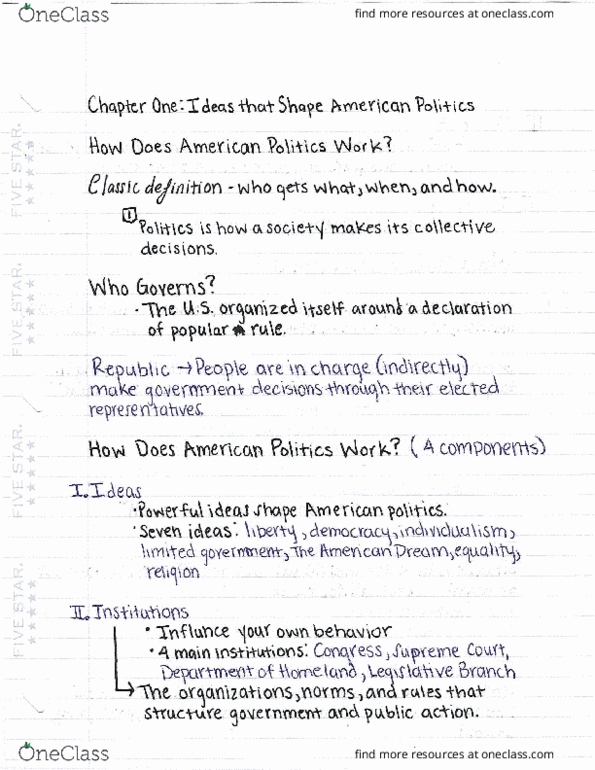 OneClass
find more resources at oneclass.com
Chapter One: Ideas that Shape American Politics
How Does American Politics Work?
Classic definition - who gets what, when, and how.
1
Politics is how a society makes its collective
decisions.
Who Governs?
· The U.S. organized itself around a declaration
of popular rule.
Republic → People are in charge (indirectly)
make government decisions through their elected
representatives.
How Does American Politics Work? (4 components)
I. Ideas
· Powerful ideas shape American politics.
· Seven ideas: liberty, democracy, individualism,
limited government, The American Dream, equality,
religion
II. Institutions
· Influnce your own behavior
· 4 main institutions: Congress, Supreme Court,
Department of Homeland, Legislative Branch
→ The organizations, norms, and rules that
structure government and public action.
FIVE STAR.
FIVE STAR.
FIVE STAR.
FIVE STAR.
OneClass
find more resources at oneclass.com